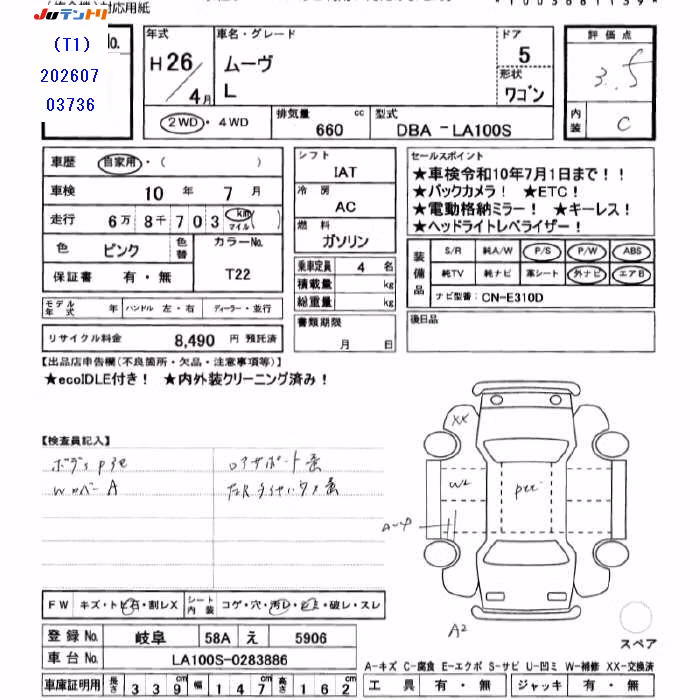 対応用紙
Juテントリ
(T1)
202607
03736
No.
年式
H 26/4月
車名・グレード
ムーヴ
L
ドア
5
形状
ワゴン
評価点
3.5
内装
C
2WD・4WD
排気量 660 cc
型式 DBA-LA100S
車歴 自家用・( )
車検 10 年 7 月
走行 6万 8千 703 km マイル( )
色 ピンク 色替 カラーNo. T22
保証書 有・無
モデル年式 年 ハンドル 左・右 ディーラー・並行
リサイクル料金 8,490 円 預託済
シフト
IAT
冷房
AC
燃料
ガソリン
乗車定員 4 名
積載量 kg
総重量 kg
書類期限
月 日
セールスポイント
★車検令和10年7月1日まで!!
★バックカメラ! ★ETC!
★電動格納ミラー! ★キーレス!
★ヘッドライトレベライザー!
装備品
S/R 純A/W P/S P/W ABS
純TV 純ナビ 革シート 外ナビ エアB
ナビ型番: CN-E310D
後日品
【出品店申告欄(不良箇所・欠品・注意事項等)】
★ecoIDLE付き! ★内外装クリーニング済み!
【検査員記入】
XX
W2
A-ウ
A2
FW キズ・トビ石・割レX シート内装 コゲ・穴・汚レ・シミ・破レ・スレ
登録No. 岐阜 58A え 5906
車台No. LA100S-0283886
車庫証明用 長さ 339 幅 147 高さ 162
スペア
A-キズ C-腐食 E-エクボ S-サビ U-凹ミ W-補修 XX-交換済
工具 有・無 ジャッキ 有・無